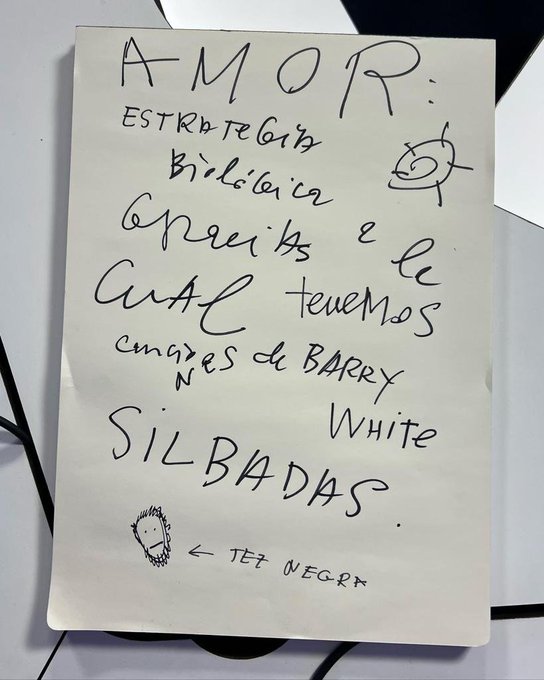 AMOR:
ESTRATEGIA
Biológica
Gracias a la
CUAL tenemos
canciones de BARRY
WHITE
SILBADAS.
← TEZ NEGRA